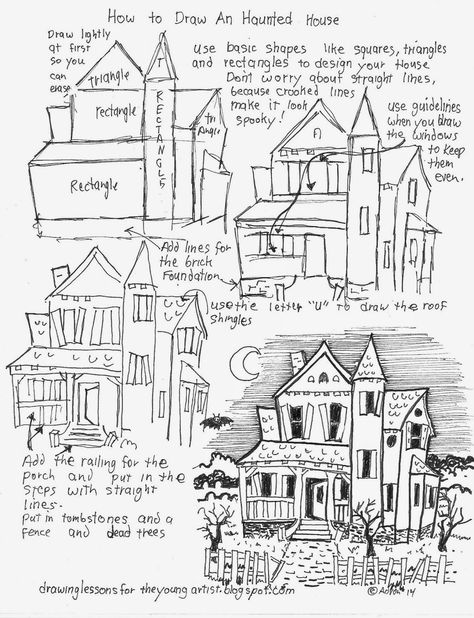 How to Draw An Haunted House
Draw lightly
at first
so you
can
erase
use basic shapes like squares, triangles
and rectangles to design your House
Don't worry about straight lines,
because crooked lines
make it look
spooky!
triangle
T
rectangle
RECTANGLE
tri
Angle
Rectangle
use guidelines
when you draw
the windows
to keep
them
even.
Add lines for
the brick
Foundation
use the letter "U" to draw the roof
shingles
Add the railing for the
porch and put in the
steps with straight
lines.
Put in tombstones and a
fence and dead trees
drawinglessonsfortheyoungartist.blogspot.com